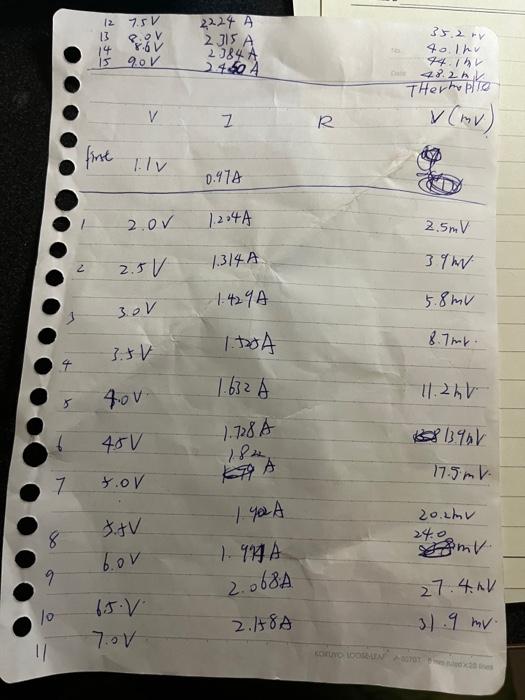 12 7.5V 2.224 A 35.2 mV
13 8.0V 2.315 A 40.1mV
14 8.5V 2.384A 44.1mV
15 9.0V 2.450A 48.2mV
No.
Date
V I R V(mV)
first 1.1V 0.97A
1 2.0V 1.204A 2.5mV
2 2.5V 1.314A 3.9mV
3 3.0V 1.429A 5.8mV
4 3.5V 1.525A 8.7mV
5 4.0V 1.632A 11.2mV
6 4.5V 1.728A 13.9mV
7 5.0V 1.822 A 17.5mV
8 5.5V 1.902A 20.2mV
9 6.0V 1.991A 24.0 mV
10 6.5V 2.068A 27.4mV
11 7.0V 2.158A 31.9 mV
KOKUYO LOOSE-LEAF